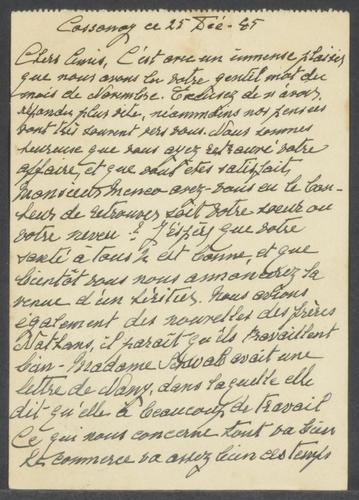 Cossonay ce 25 Déc - 45
Chers Amis, C'est avec un immense plaisir
que nous avons lu votre gentil mot du
mois de Novembre. Excusez de n'avoir
répondu plus vite, néammoins nos pensées
vont très souvent vers vous. Nous sommes
heureuse que vous ayez retrouvé votre
affaire, et que vous êtes satisfait,
Monsieur avez-vous eu le bon-
heur de retrouver soit votre soeur ou
votre neveu? J'espère que votre
santé à tous 2 est bonne, et que
bientôt vous nous annoncerez la
venue d'un héritier. Nous avions
également des nouvelles des frères
Nathans, il paraît qu'ils travaillent
bien - Madame avait une
lettre de Nany, dans laquelle elle
dit qu'elle à beaucoup de travail
Ce qui nous concerne tout va bien
Le commerce va assez bien ces temps